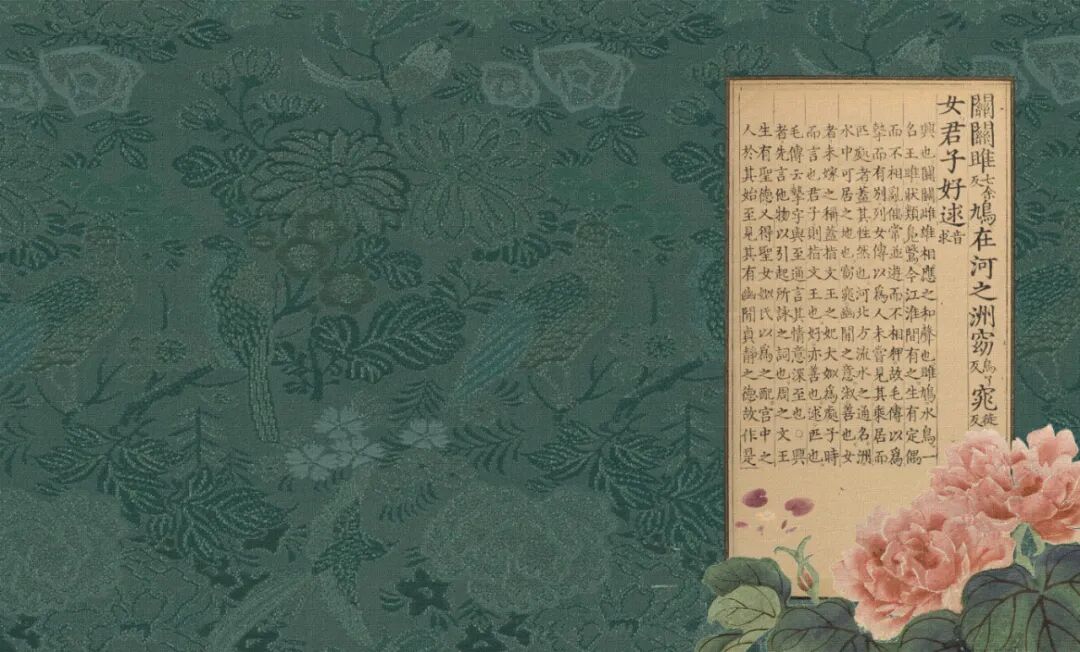 關關雎七余反鳩在河之洲窈烏了反窕徒反
女君子好逑音求
興也關關雌雄相應之和聲也雎鳩水鳥一
名王雎狀類鳧鷖今江淮間有之生有定偶
而不相亂偶常並遊而不相狎故毛傳以爲
摯而有別列女傳以爲人未嘗見其乘居而
匹處者蓋其性然也河北方流水之通名洲
水中可居之地也窈窕幽閒之意淑善也女
者未嫁之稱蓋指文王之妃大姒爲處子時
而言也君子則指文王也好亦善也逑匹也
毛傳云摯字與至通言其情意深至也○興
者先言他物以引起所詠之詞也周之文王
生有聖德又得聖女姒氏以爲之配宮中之
人於其始至見其有幽閒貞靜之德故作是